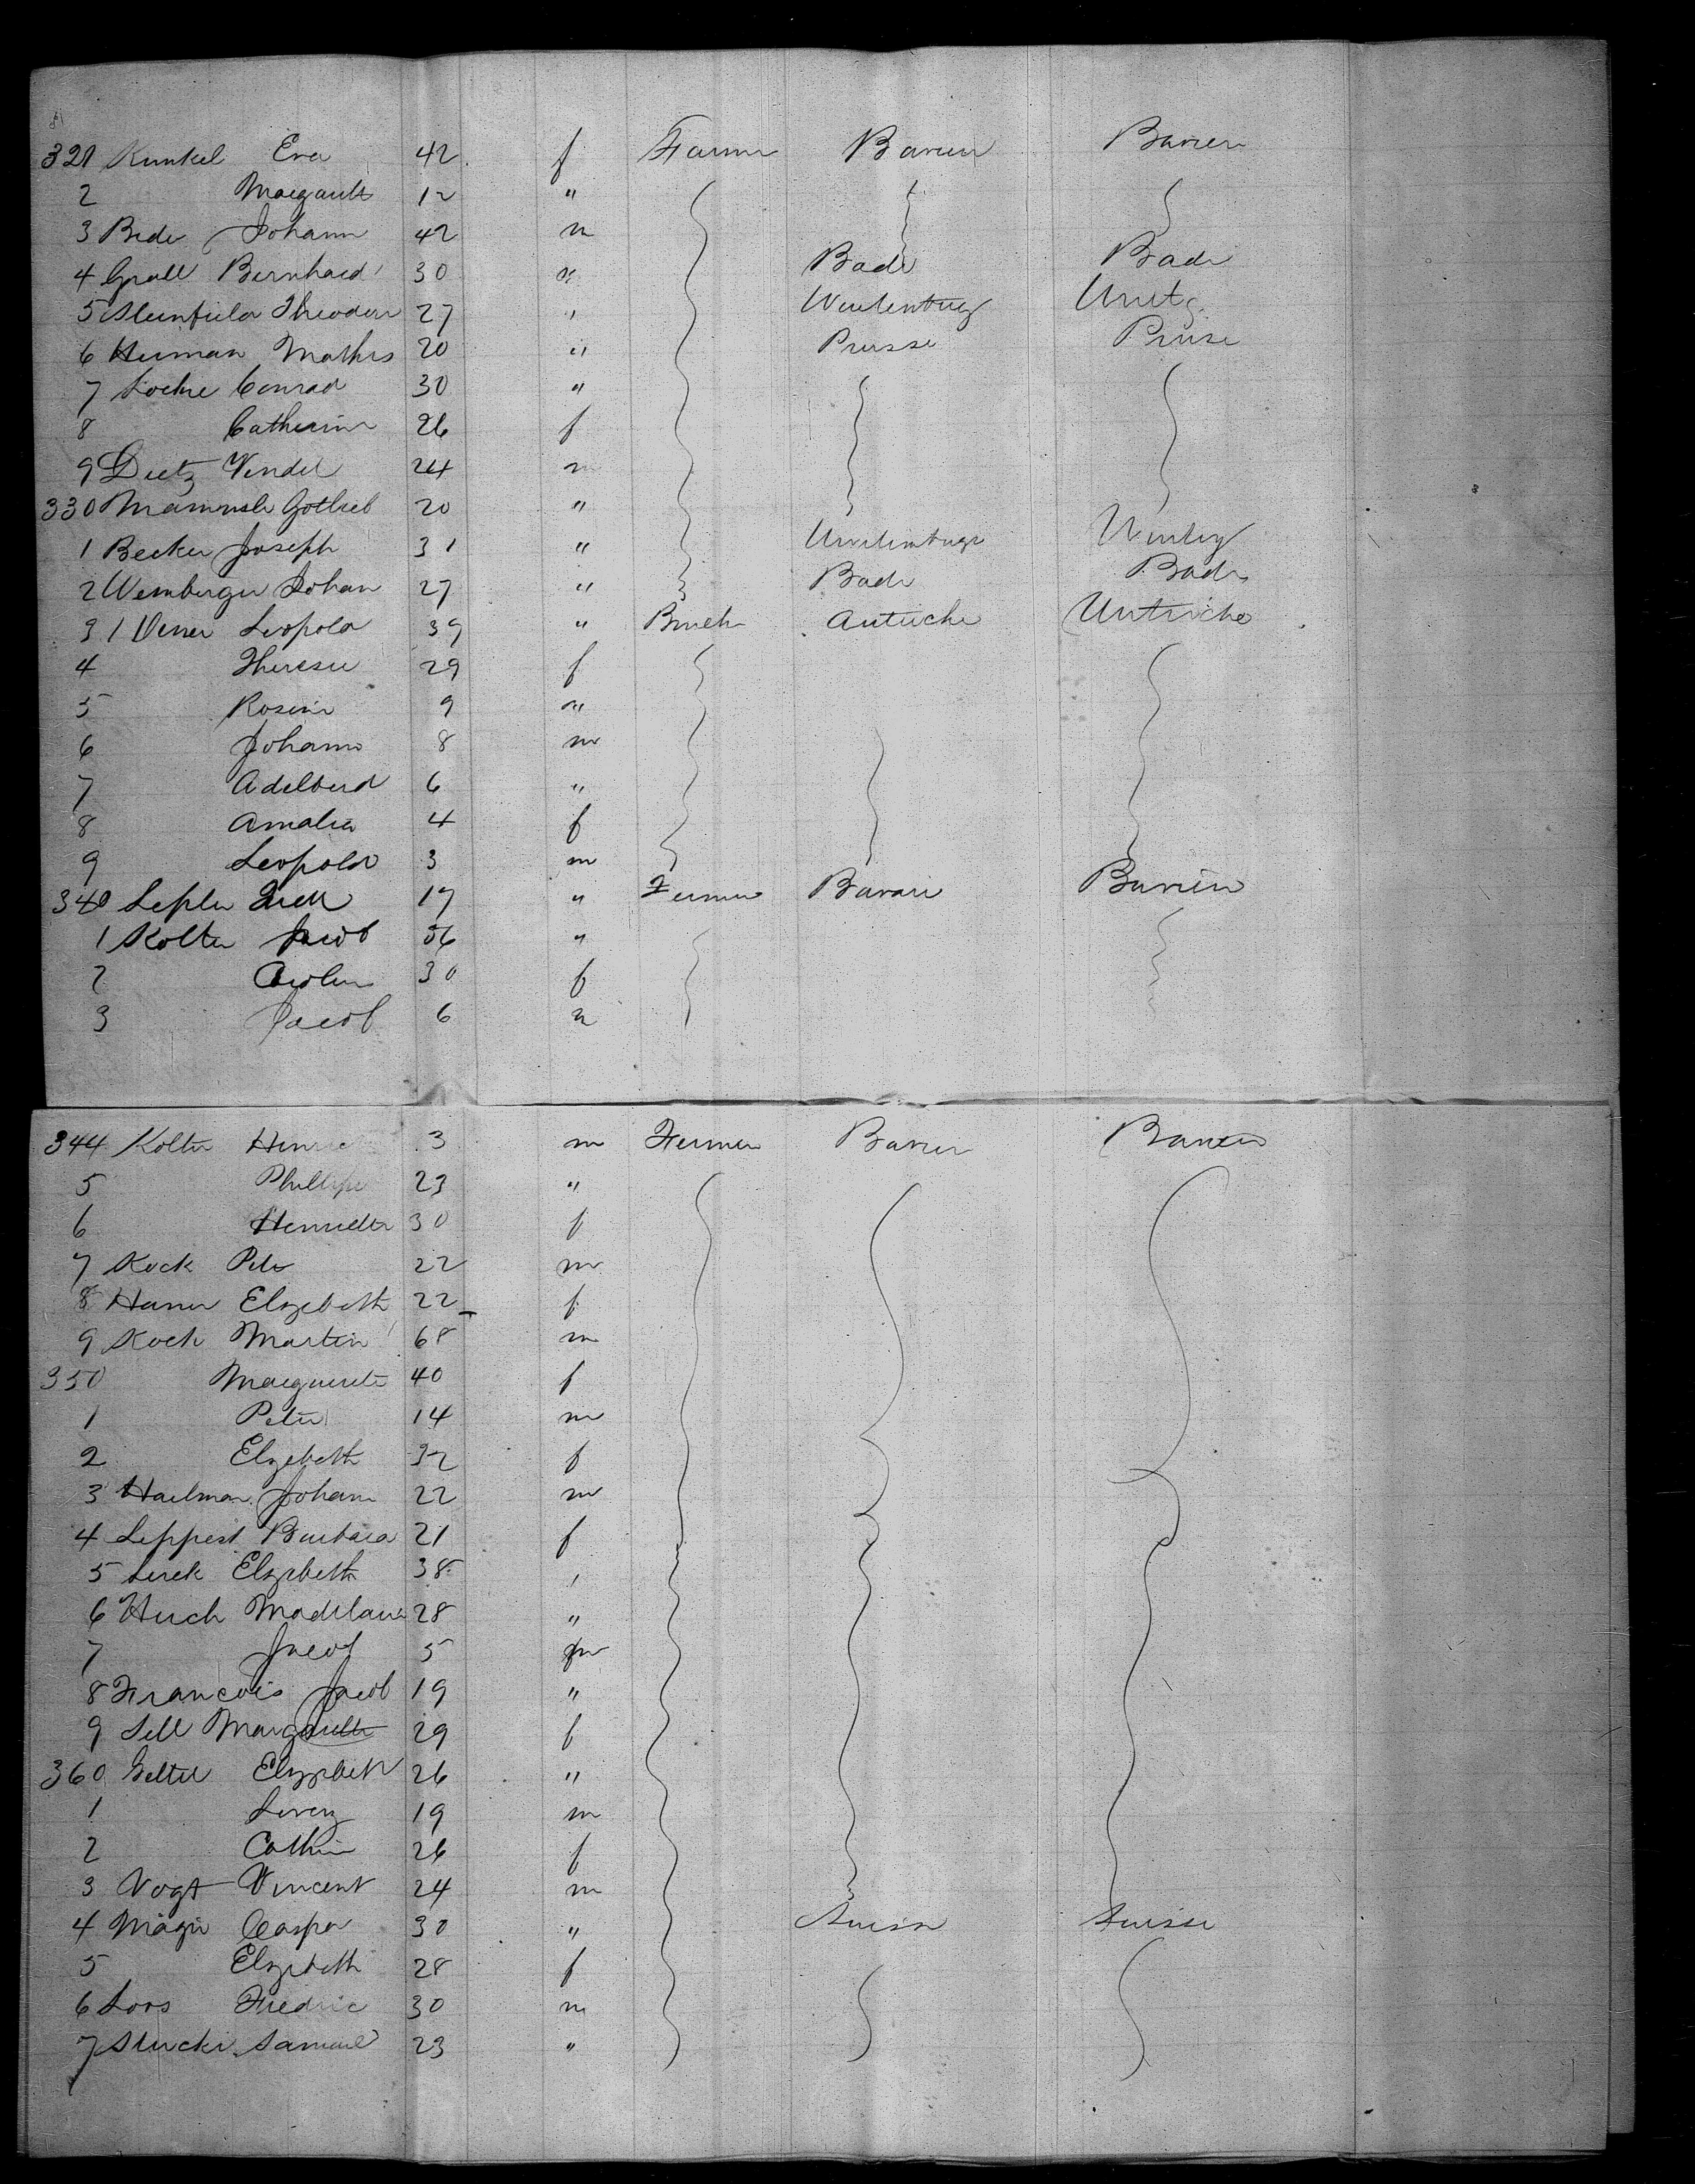 321 Kunkel Eva 42 f Farmer Bavier Bavier
2 Margaret 12 "
3 Bede Johann 42 m
4 Groll Bernhard 30 " Bade Bade
5 Theodor 27 " Wurtenburg Wurtg
6 Herman Mathis 20 " Prusse Prusse
7 Lochne Conrad 30 "
8 Catherine 26 f
9 Dietz Vendel 24 m
330 Gotlieb 20 "
1 Becker Joseph 31 " Wurtenburg Wurtbg
2 Wemberger Johan 27 " Bade Bade
3 Leopold 39 " Autriche Autriche
4 Therese 29 f
5 Rosine 9 "
6 Johann 8 m
7 Adelberd 6 "
8 Amalia 4 f
9 Leopold 3 m
340 Lepler 17 " Fermer Bavari Bavier
1 Kolter Jacob 36 "
2 Carolin 30 f
3 Jacob 6 m
344 Kolter Henric 3 m Fermer Bavier Bavier
5 Phillipe 23 "
6 Henrietta 30 f
7 Kock Peter 22 m
8 Hamer Elizebeth 22 f
9 Koch Martin 68 m
350 Marguerete 40 f
1 Peter 14 m
2 Elizebeth 32 f
3 Hailman Johann 22 m
4 Leppert Barbara 21 f
5 Lerck Elizebeth 38 "
6 Hirch Madelaine 28 "
7 Jacob 5 m
8 Francois Jacob 19 "
9 Sell Margaretta 29 f
360 Geltel Elizebeth 26 "
1 Lorenz 19 m
2 Cathrin 26 f
3 Vogt Vincent 24 m
4 Mägie Caspar 30 " Suisse Suisse
5 Elizebeth 28 f
6 Loos Fredric 30 m
7 Stucki Samuel 23 "